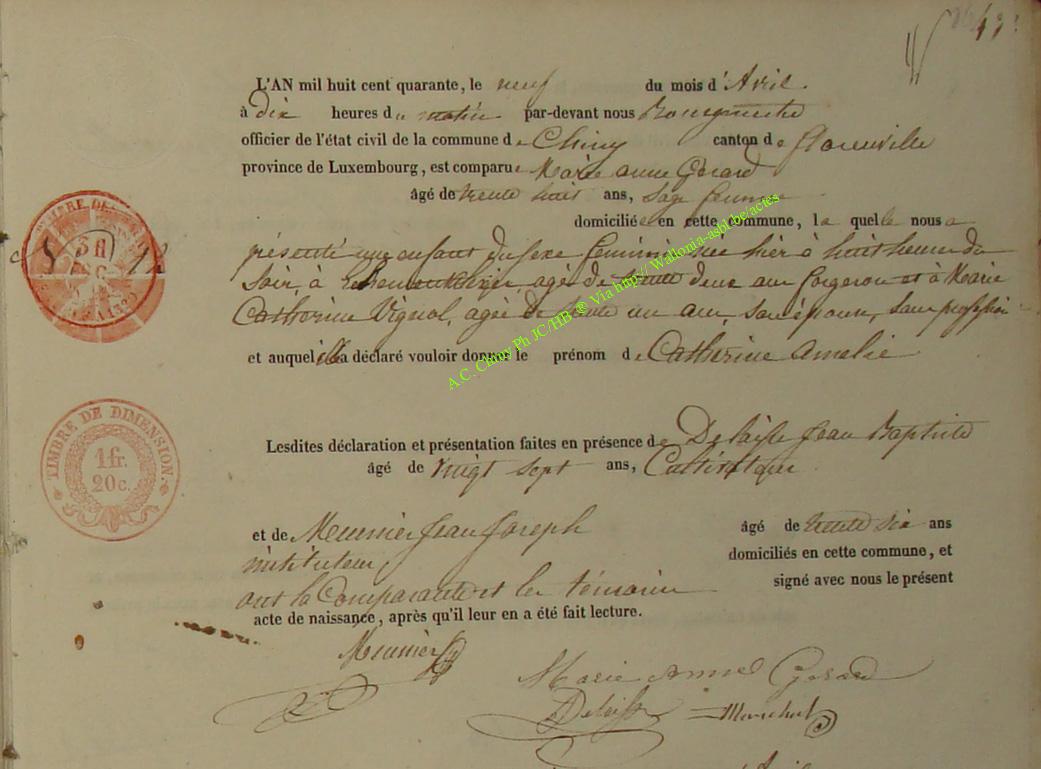 43
L'AN mil huit cent quarante, le neuf du mois d'Avril
à dix heures du matin par-devant nous Bourgmestre
officier de l'état civil de la commune de Chiny canton de florenville
province de Luxembourg, est comparue Marie anne Gerard
âgé de trente huit ans, Sage femme
domiciliée en cette commune, laquelle nous a
présenté un enfant du sexe féminin née hier à huit heures du
soir, à agé de trente deux ans forgeron et à Marie
Catherine Vignol, agée de trente un ans, son épouse, sans profession
et auquel elle a déclaré vouloir donner le prénom de Catherine Amelie
Lesdites déclaration et présentation faites en présence de Delaisse Jean Baptiste
âgé de vingt sept ans,
et de Meunier Jean Joseph âgé de trente six ans
instituteur, domiciliés en cette commune, et
ont la Comparante et les témoins signé avec nous le présent
acte de naissance, après qu'il leur en a été fait lecture.
Meunier
Marie Anne Gerard
Delaisse
TIMBRE DE DIMENSION.
1 fr.
20 c.
A.C. Chiny Ph JC/HB ® Via http// Wallonia-asbl.be/actes